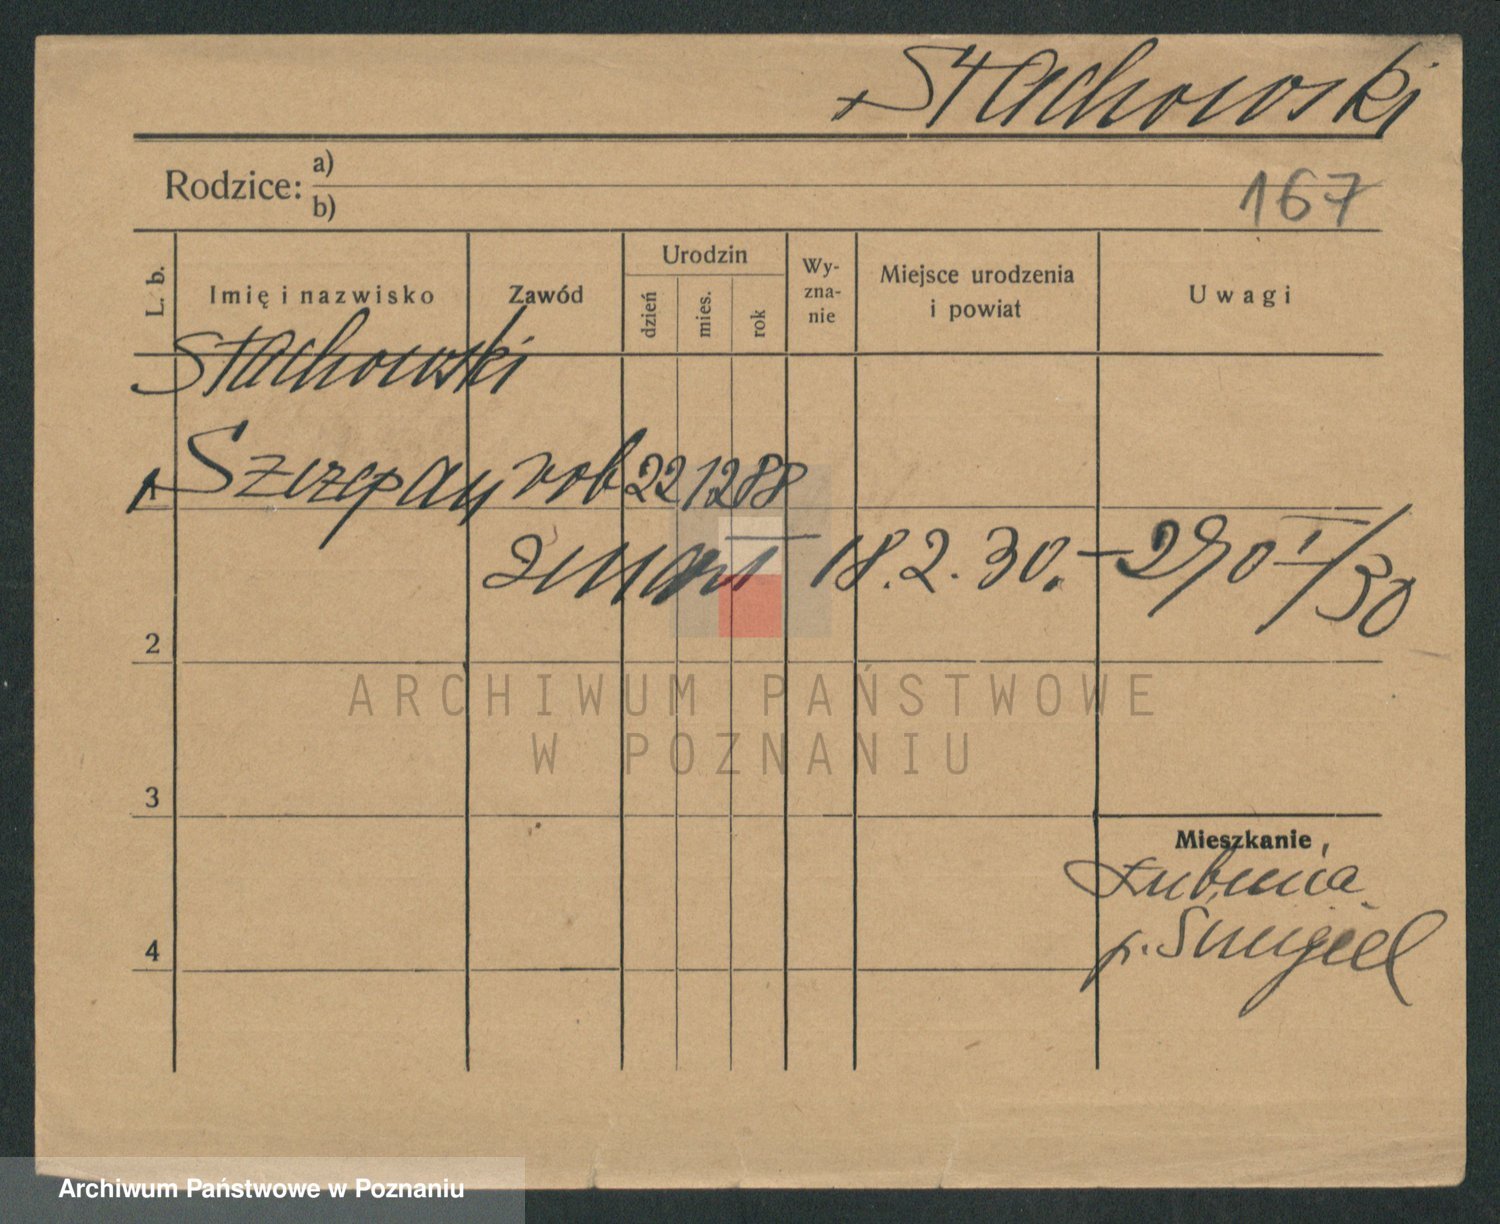 Stachowski
Rodzice: a)
b)
167
L. b.
Imię i nazwisko
Zawód
Urodzin
dzień
mies.
rok
Wy-
zna-
nie
Miejsce urodzenia
i powiat
Uwagi
Stachowski
1 Szczepan rob 22 12 88
zmarł 18.2.30. –
2
3
4
Mieszkanie
p. Śmigiel
ARCHIWUM PAŃSTWOWE
W POZNANIU
Archiwum Państwowe w Poznaniu